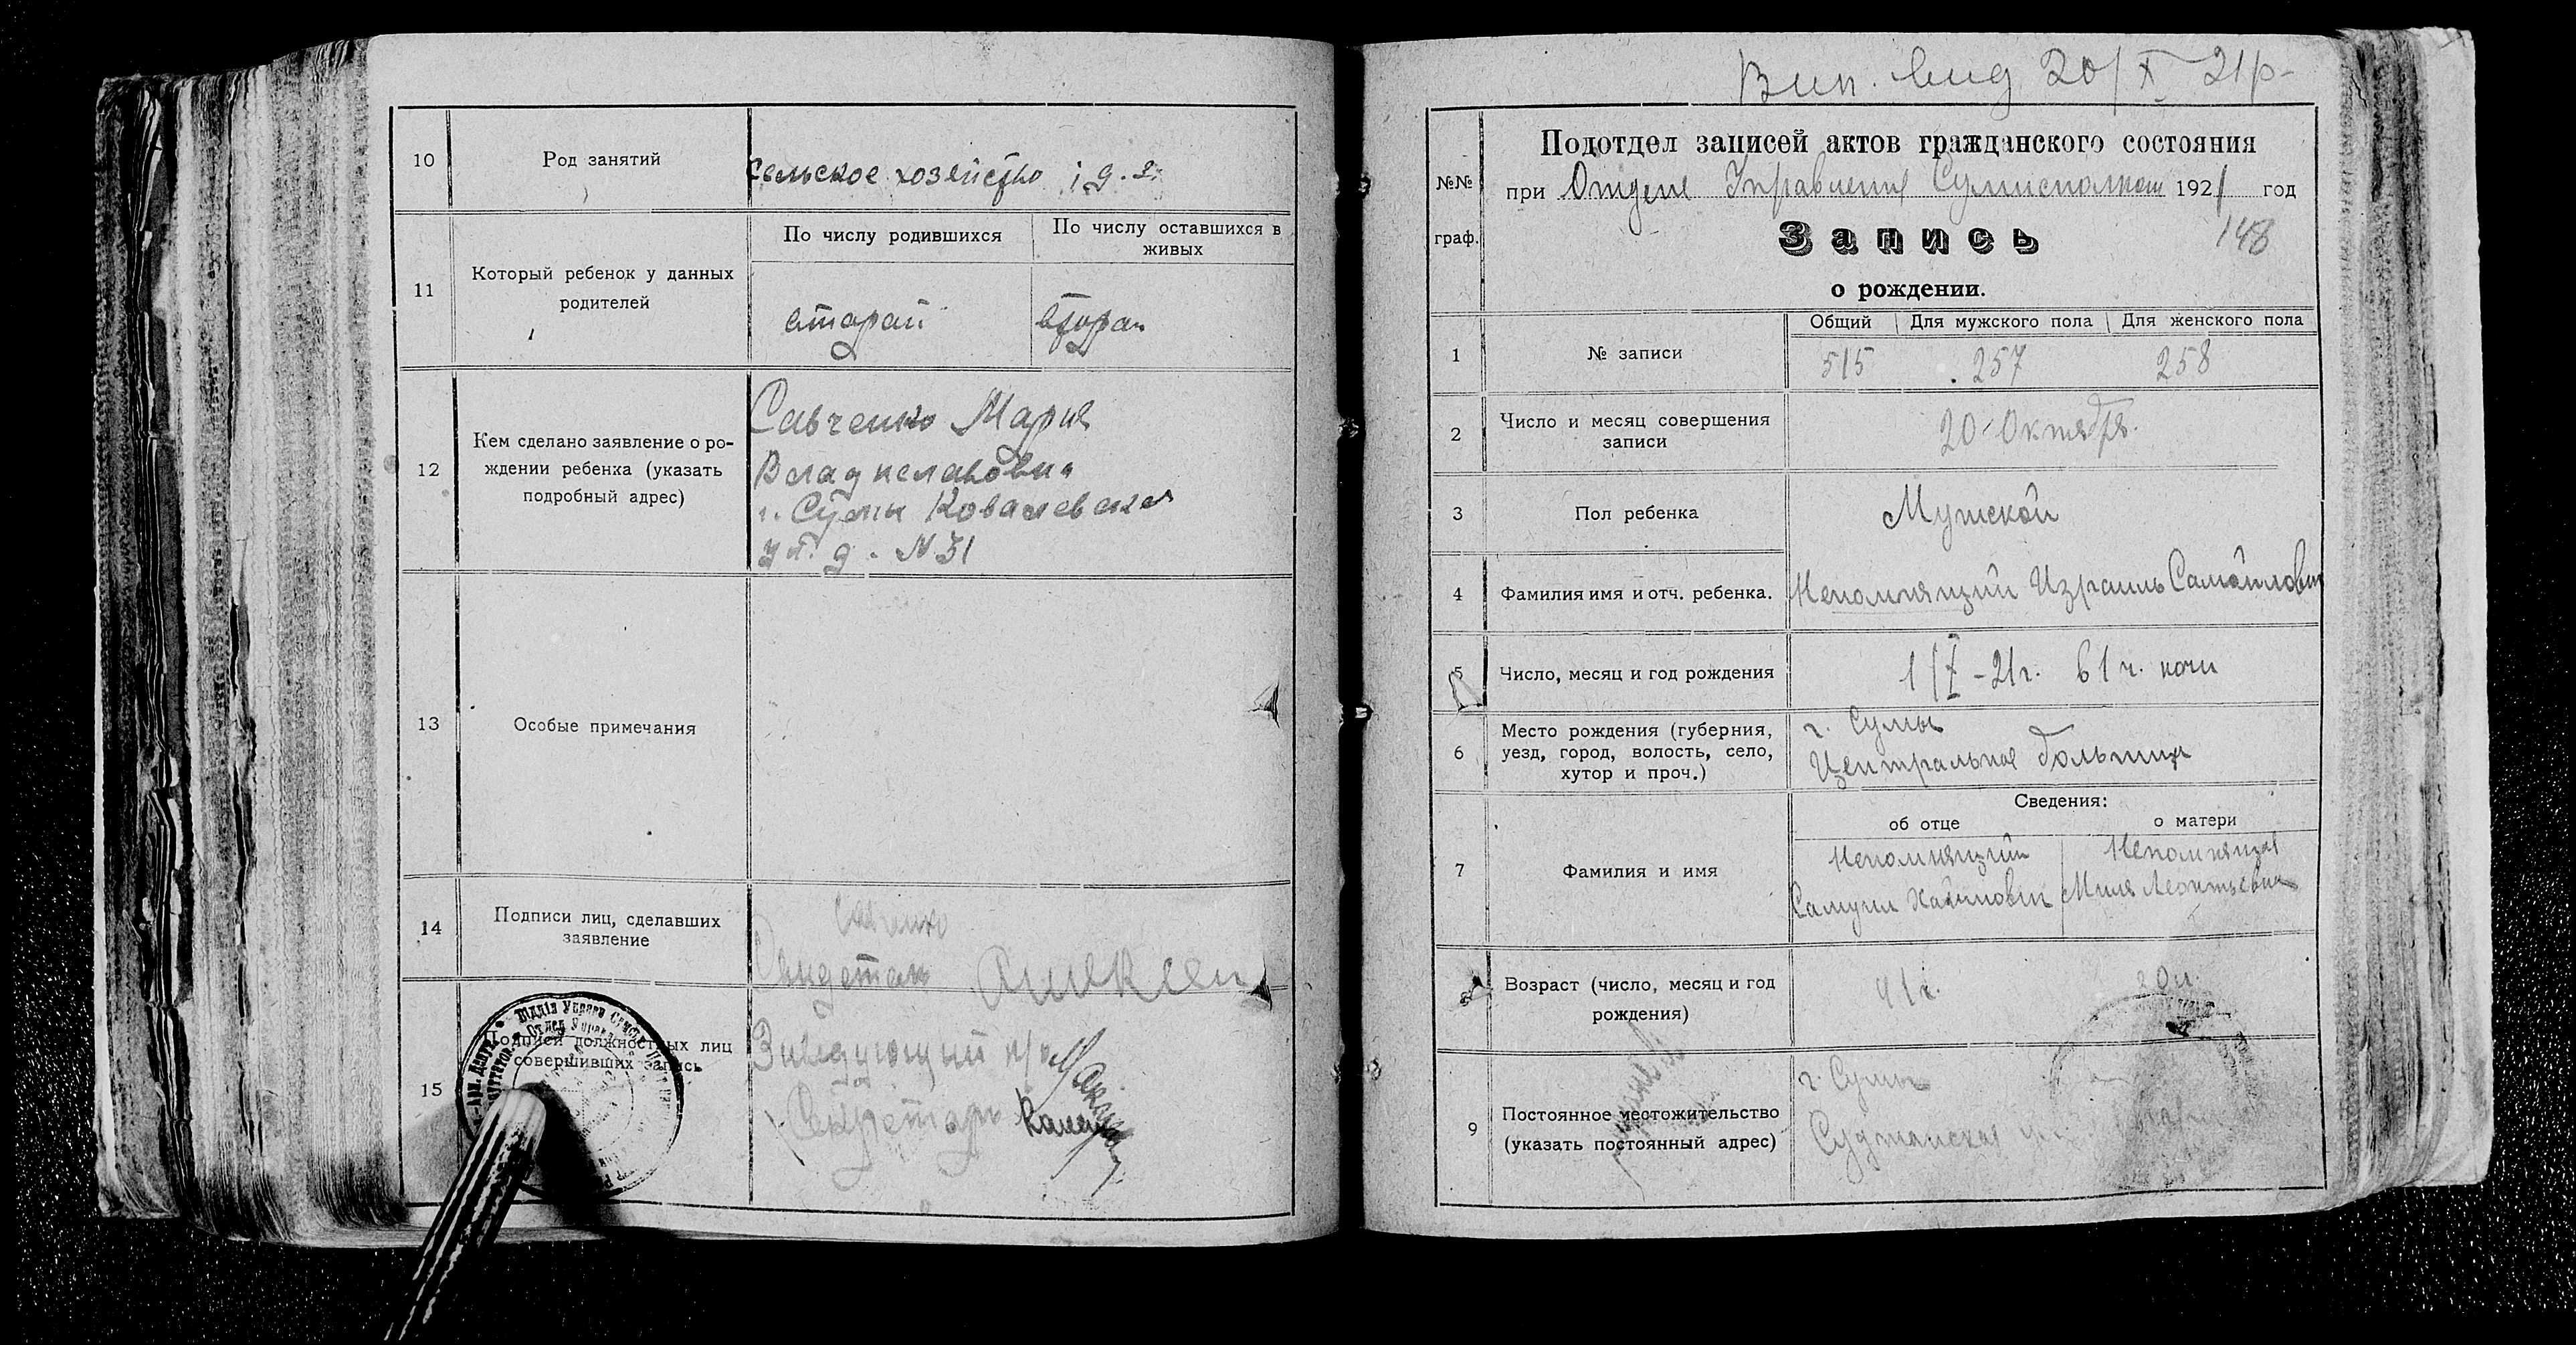 10
Род занятий
сельское хозяйство
11
Который ребенок у данных
родителей
По числу родившихся
По числу оставшихся в
живых
второй
второй
12
Кем сделано заявление о ро-
ждении ребенка (указать
подробный адрес)
Савченко Мария
г. Сумы Ковалевская
ул. д. N 31
13
Особые примечания
14
Подписи лиц, сделавших
заявление
Савченко
Свидетель
15
Подписи должностных лиц
совершивших запись
Заведующий п/о
Секретарь
Вип. вид 20/X 21р-
№№
граф.
Подотдел записей актов гражданского состояния
при Отделе Управления Сумисполкома 1921 год
Запись
148
о рождении.
1
№ записи
Общий
Для мужского пола
Для женского пола
515
257
258
2
Число и месяц совершения
записи
20 Октября
3
Пол ребенка
Мужской
4
Фамилия имя и отч. ребенка.
Непомнящий Израиль Самойлович
5
Число, месяц и год рождения
1/X - 21 г. в 1 ч. ночи
6
Место рождения (губерния,
уезд, город, волость, село,
хутор и проч.)
г. Сумы
Центральная больница
7
Фамилия и имя
Сведения:
об отце
о матери
Непомнящий
Самуил Хаимович
Непомнящая
Миля Леонтьевна
Возраст (число, месяц и год
рождения)
41 г.
20 л.
9
Постоянное местожительство
(указать постоянный адрес)
г. Сумы
Суджанская